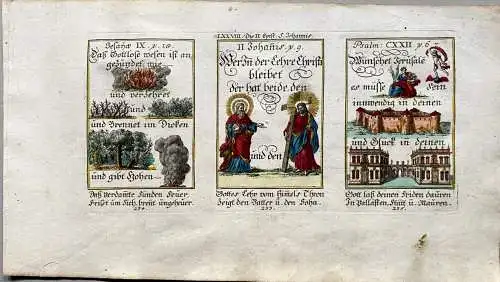 LXXVIII. Die II. Epist. S. Johannis.
Jesaiæ IX. v. 18.
Daß Gottlose wesen ist an
gezündet, wie
und verzehret
und Brennet im Dicken
und gibt Hohen
Daß verdamte Sünden Feuer,
Frißt üm Sich, breñt ungeheuer.
254.
II Johañis v. 9.
Wer in der Lehre Christi
bleibet
der hat beide, den
und den
Gottes Lehr vom Him̃els Thron
Zeigt den Vatter ü. den Sohn.
255.
Psalm: CXXII v. 6.
Wünschet Jerusale
es müsse Fein
inwendig in deinen
und Glück in deinen
Gott laß deinen Friden dauren
In Pallästen, Stätt ü. Mauren.
256.